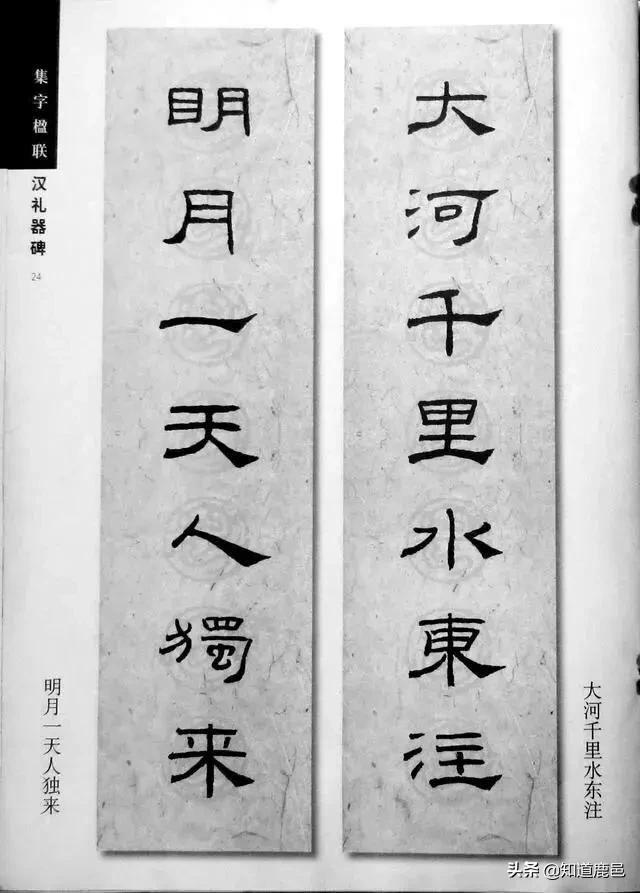 大河千里水東注
明月一天人獨来
大河千里水东注
明月一天人独来
集字楹联
汉礼器碑
24
头条 @知道鹿邑